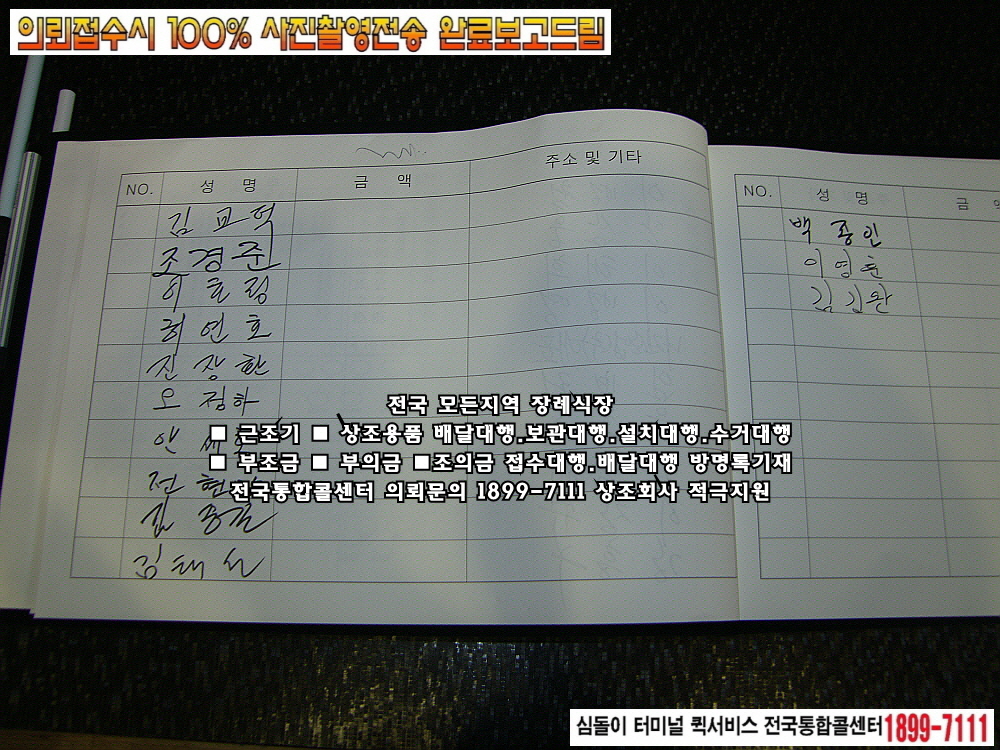 의뢰접수시 100% 사진촬영전송 완료보고드림
NO. 성 명 금 액 주소 및 기타
김 교 덕
조 경 준
허 연 호
진 장 환
오 정 하
안
전 현
김 종 길
김 태
NO. 성 명 금
백 종 인
이 영 훈
김 김 완
전국 모든지역 장례식장
■ 근조기 ■ 상조용품 배달대행.보관대행.설치대행.수거대행
■ 부조금 ■ 부의금 ■조의금 접수대행.배달대행 방명록기재
전국통합콜센터 의뢰문의 1899-7111 상조회사 적극지원
심돌이 터미널 퀵서비스 전국통합콜센터1899-7111